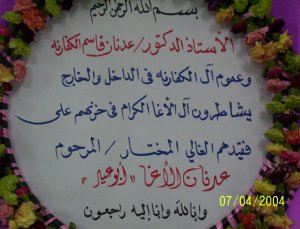 بسم الله الرحمن الرحيم
الأستاذ الدكتور/عدنان قاسم الكفارنه
وعموم آل الكفارنه في الداخل والخارج
يشاطرون آل الأغا الكرام في حزنهم على
فقيدهم الغالي المختار/المرحوم
عدنان الأغا "أبو عيد"
وإنا لله وإنا إليه راجعون
07/04/2004